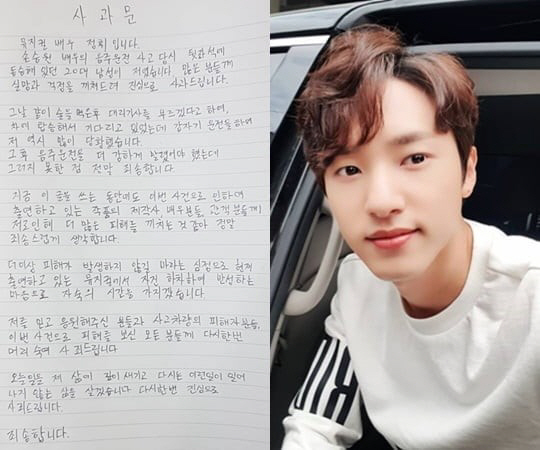 사 과 문
뮤지컬 배우 정휘 입니다.
손승원 배우의 음주운전 사고 당시 뒷좌석에
동승해 있던 20대 남성이 저였습니다. 많은 분들께
실망과 걱정을 끼쳐드려 진심으로 사과드립니다.
그날 같이 술을 먹은후 대리기사를 부르겠다고 하여,
차에 탑승해서 기다리고 있었는데 갑자기 운전을하여
저 역시 많이 당황했습니다.
그후 음주운전을 더 강하게 말렸어야 했는데
그러지 못한 점 정말 죄송합니다.
지금 이 글을 쓰는 동안에도 이번 사건으로 인하여
출연하고 있는 작품의 제작사, 배우분들, 관객 분들께
저로인해 더 많은 피해를 끼치는 것 같아 정말
죄송스럽게 생각합니다.
더이상 피해가 발생하지 않길 바라는 심정으로 현재
출연하고 있는 뮤지컬에서 자진 하차하여 반성하는
마음으로 자숙의 시간을 가지겠습니다.
저를 믿고 응원해주신 분들과 사고차량의 피해자분들,
이번 사건으로 피해를 보신 모든 분들께 다시한번
머리 숙여 사죄드립니다
오늘일을 제 삶에 깊이 새기고 다시는 이런일이 일어
나지 않는 삶을 살겠습니다 다시한번 진심으로
사죄드립니다.
죄송합니다.